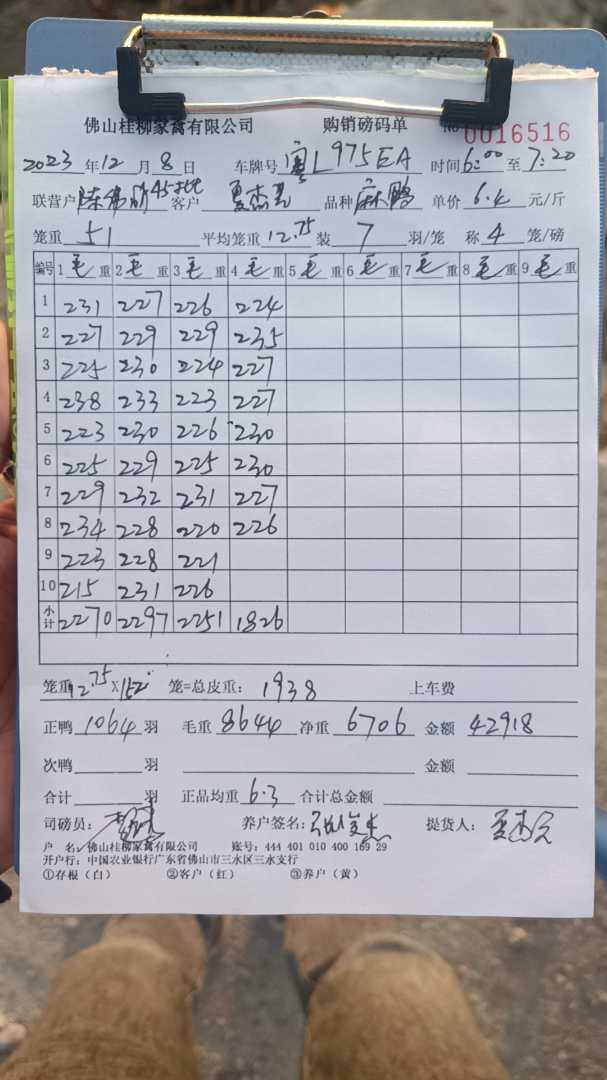 佛山桂柳家禽有限公司 购销磅码单 No 0016516
2023 年 12 月 8 日 车牌号 粤L975EA 时间 6:00 至 7:20
联营户 陈伟 45批 客户 夏杰 品种 麻鸭 单价 6.4 元/斤
笼重 51 平均笼重 12.75 装 7 羽/笼 称 4 笼/磅
编号 1 毛 重 2 毛 重 3 毛 重 4 毛 重 5 毛 重 6 毛 重 7 毛 重 8 毛 重 9 毛 重
1 231 227 226 224
2 227 229 229 235
3 225 230 224 227
4 238 233 223 227
5 223 230 226 230
6 225 229 225 230
7 229 232 231 227
8 234 228 220 226
9 223 228 221
10 215 231 226
小计 2270 2297 2251 1826
笼重 12.75 X 152 笼=总皮重: 1938 上车费
正鸭 1064 羽 毛重 8644 净重 6706 金额 42918
次鸭 羽 金额
合计 羽 正品均重 6.3 合计总金额
司磅员: 养户签名: 提货人: 夏杰
户 名: 佛山桂柳家禽有限公司 账号: 444 401 010 400 169 29
开户行: 中国农业银行广东省佛山市三水区三水支行
①存根（白） ②客户（红） ③养户（黄）